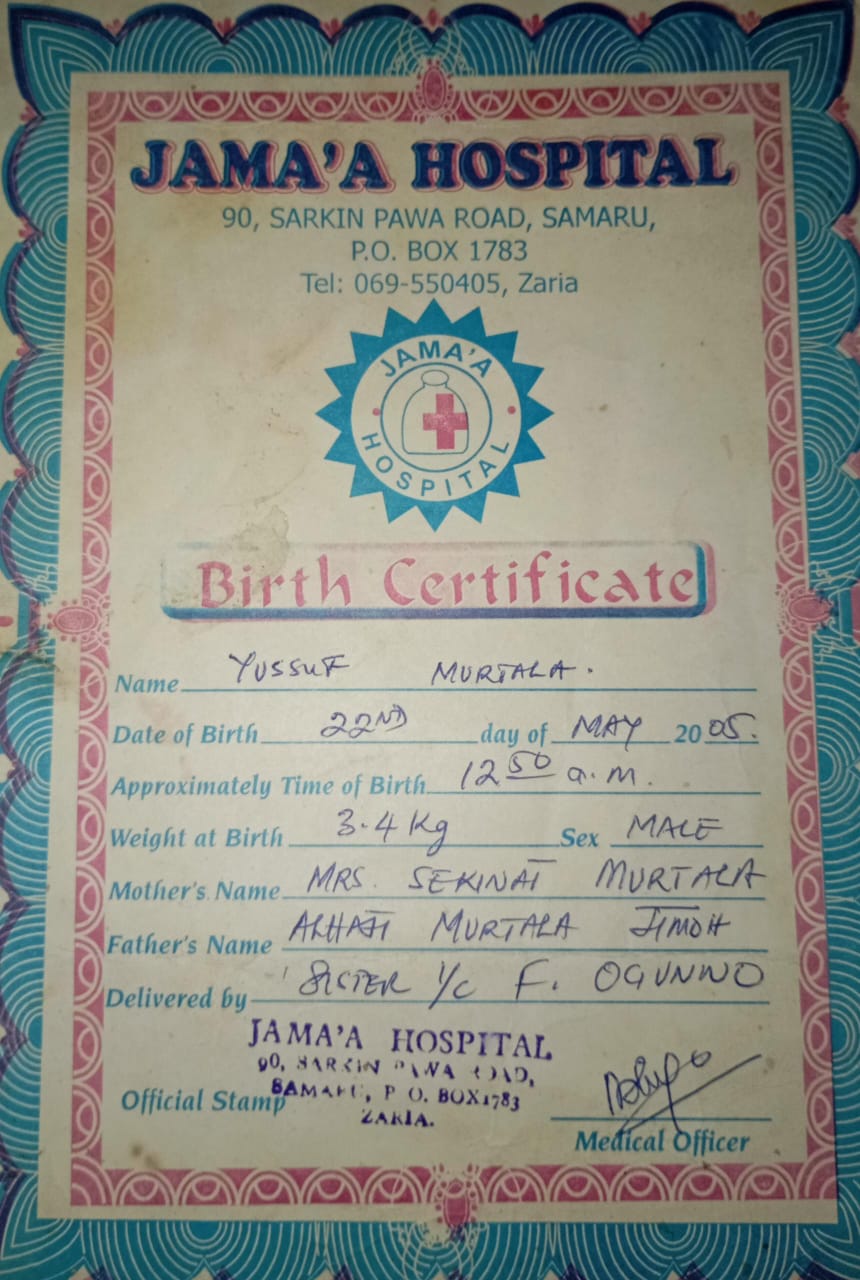 JAMA'A HOSPITAL
90, SARKIN PAWA ROAD, SAMARU,
P.O. BOX 1783
Tel: 069-550405, Zaria
JAMA'A
HOSPITAL
Birth Certificate
Name YUSSUF MURTALA.
Date of Birth 22ND day of MAY 2005.
Approximately Time of Birth 12 50 a.m.
Weight at Birth 3.4 Kg Sex MALE
Mother's Name MRS. SEKINAT MURTALA
Father's Name ALHAJI MURTALA JIMOH
Delivered by SISTER I/C F. OGUNWO
JAMA'A HOSPITAL
90, SARKIN PAWA ROAD,
SAMARU, P O. BOX1783
ZARIA.
Official Stamp
Medical Officer